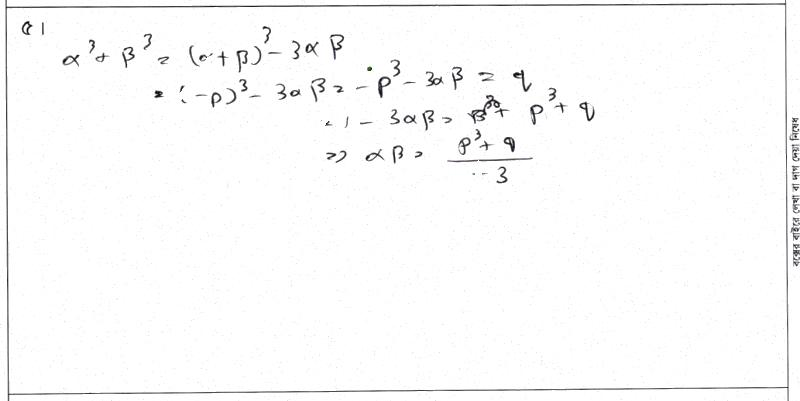 Q 1
α³ + β³ = (α + β)³ - 3αβ
= (-p)³ - 3αβ = - p³ - 3αβ = q
∴ - 3αβ = p³ + q
⇒ αβ = (p³ + q) / -3
বক্সের বাইরে লেখা বা দাগ দেয়া নিষেধ